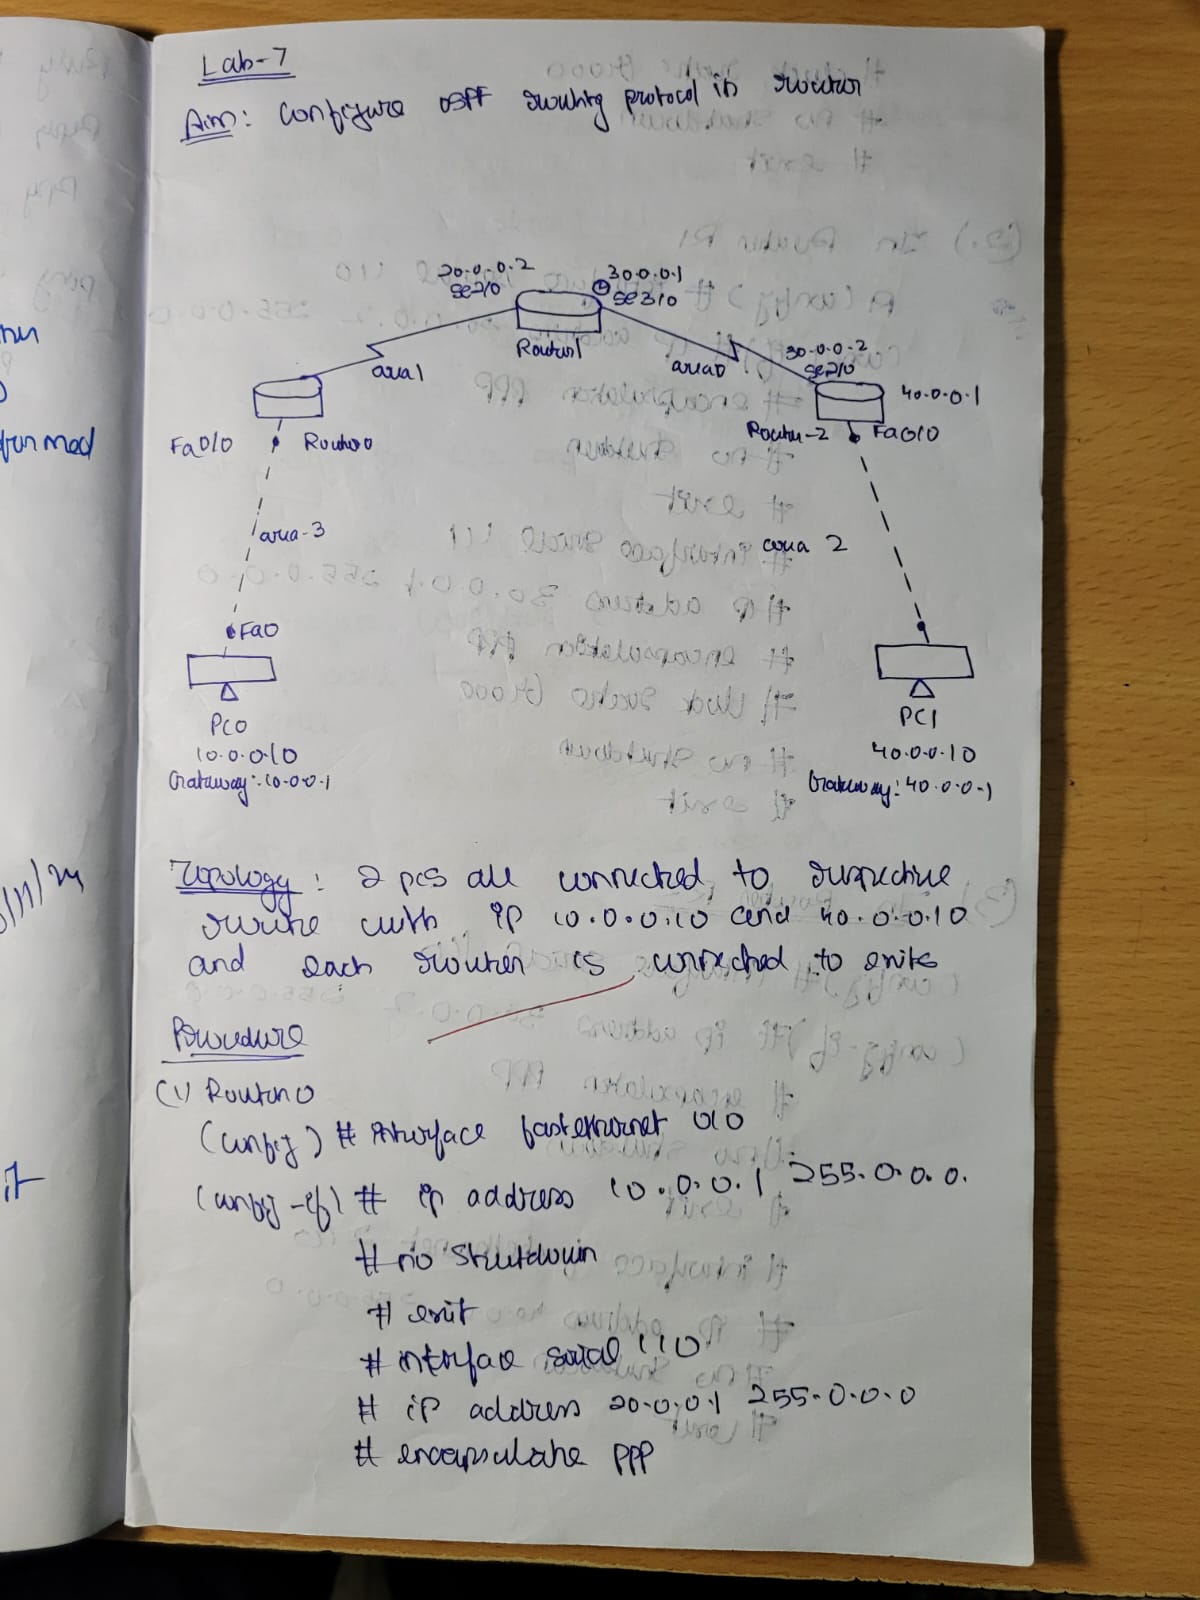 Lab-7
Aim: Configure OSPF routing protocol in router
20.0.0.2
se2/0
30.0.0.1
se3/0
Router1
area1
area0
30.0.0.2
se2/0
40.0.0.1
Fa0/0
Router0
Router-2
Fa0/0
area-3
area 2
Fa0
PC0
10.0.0.10
Gateway: 10.0.0.1
PC1
40.0.0.10
Gateway: 40.0.0.1
Topology: 2 pcs are connected to respective
route with ip 10.0.0.10 and 40.0.0.10
and each router is connected to exits
Procedure
(1) Router 0
(config) # interface fastethernet 0/0
(config-if) # ip address 10.0.0.1 255.0.0.0.
# no shutdown
# exit
# interface serial 1/0
# ip address 20.0.0.1 255.0.0.0
# encapsulate PPP